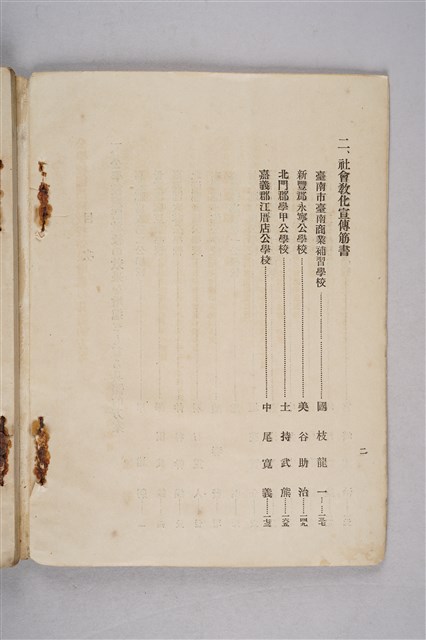 二、社會教化宣傳筋書
臺南市臺南商業補習學校……國枝龍一……
新豐郡永寧公學校……美谷助治……
北門郡學甲公學校……土持武熊……
嘉義郡江厝店公學校……中尾寬義……
二